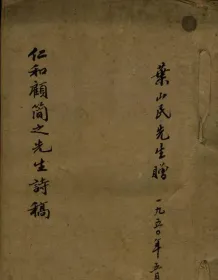 葉山民先生贈
一九五〇年五月
仁和顧簡之先生詩稿